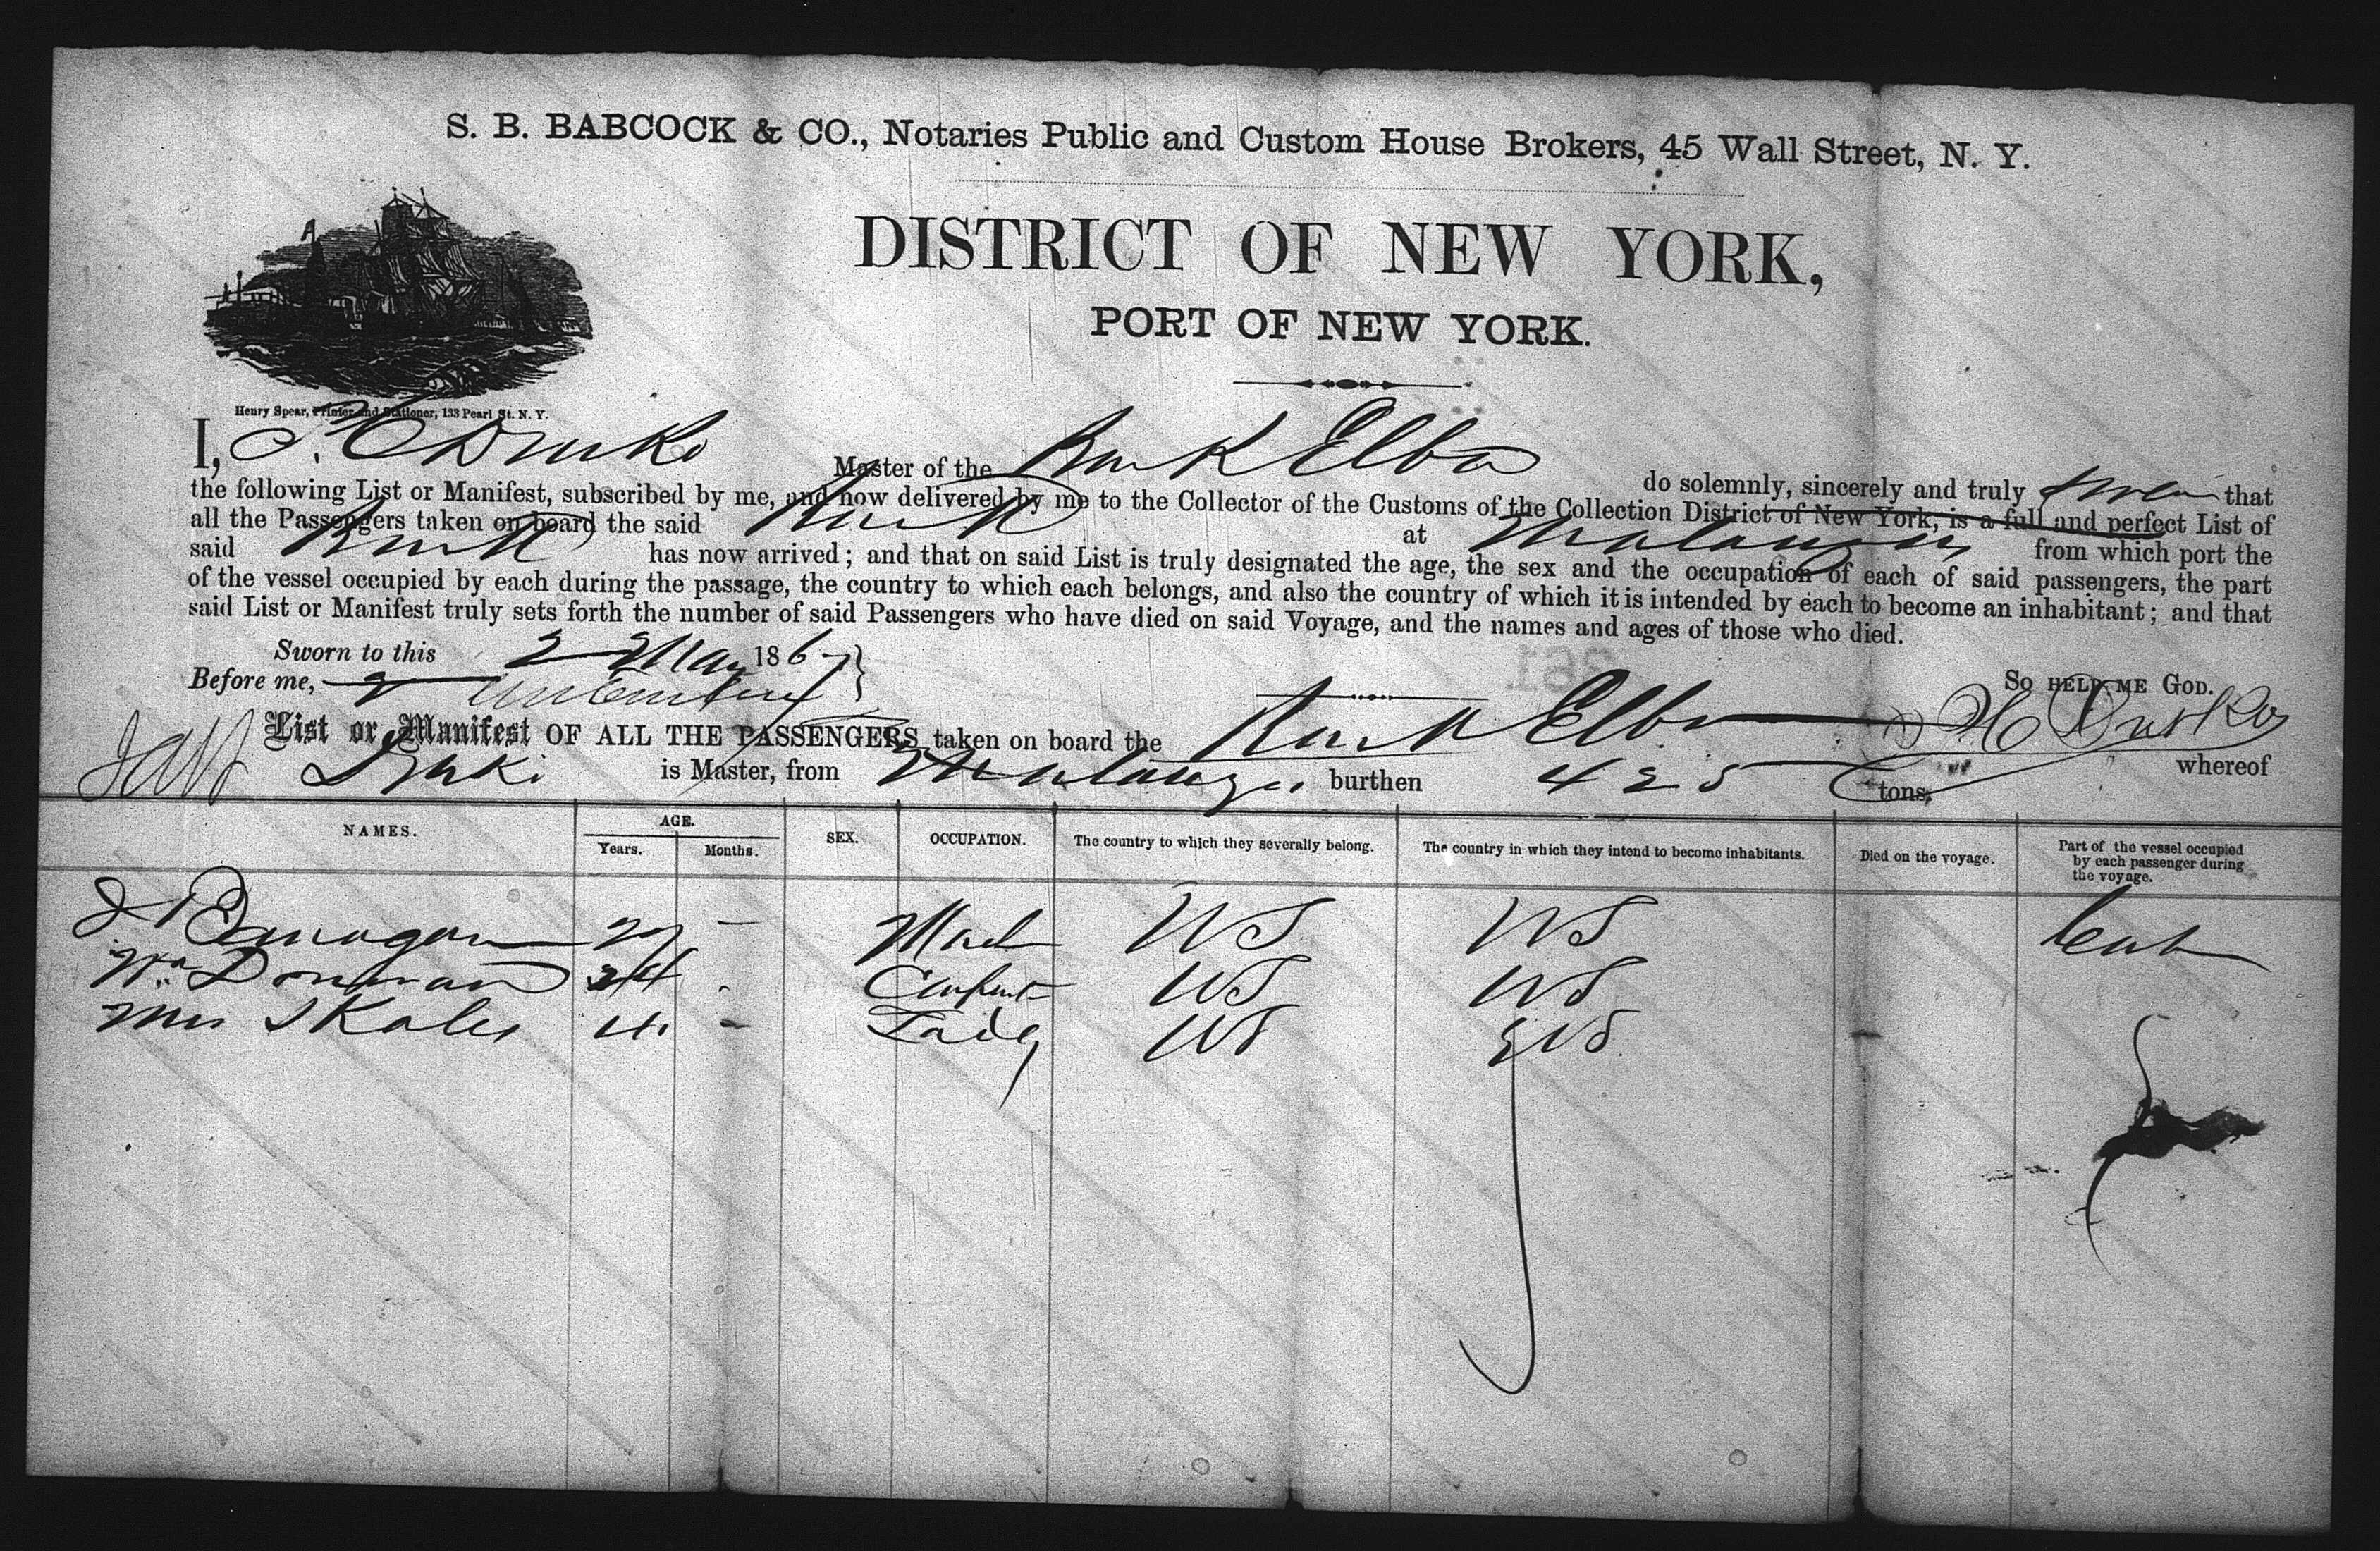 S. B. BABCOCK & CO., Notaries Public and Custom House Brokers, 45 Wall Street, N. Y.
DISTRICT OF NEW YORK,
PORT OF NEW YORK.
Henry Spear, Printer and Stationer, 133 Pearl St. N. Y.
I, Master of the Bark Elba do solemnly, sincerely and truly swear that
the following List or Manifest, subscribed by me, and now delivered by me to the Collector of the Customs of the Collection District of New York, is a full and perfect List of
all the Passengers taken on board the said Bark at Matanzas from which port the
said Bark has now arrived; and that on said List is truly designated the age, the sex and the occupation of each of said passengers, the part
of the vessel occupied by each during the passage, the country to which each belongs, and also the country of which it is intended by each to become an inhabitant; and that
said List or Manifest truly sets forth the number of said Passengers who have died on said Voyage, and the names and ages of those who died.
Sworn to this 2 May 186
Before me,
So HELP ME GOD.
361
List or Manifest OF ALL THE PASSENGERS taken on board the Bark Elba whereof
is Master, from Matanzas burthen 425 tons,
NAMES. AGE. Years. Months. SEX. OCCUPATION. The country to which they severally belong. The country in which they intend to become inhabitants. Died on the voyage. Part of the vessel occupied by each passenger during the voyage.
US US
Wm Donovan US US
Mrs Lady US US